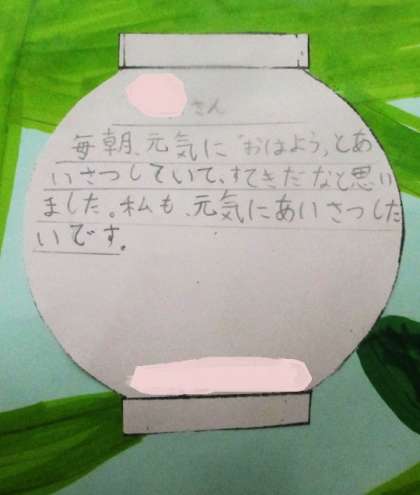 さん
毎朝、元気に「おはよう」とあ
いさつしていて、すてきだなと思い
ました。私も、元気にあいさつした
いです。